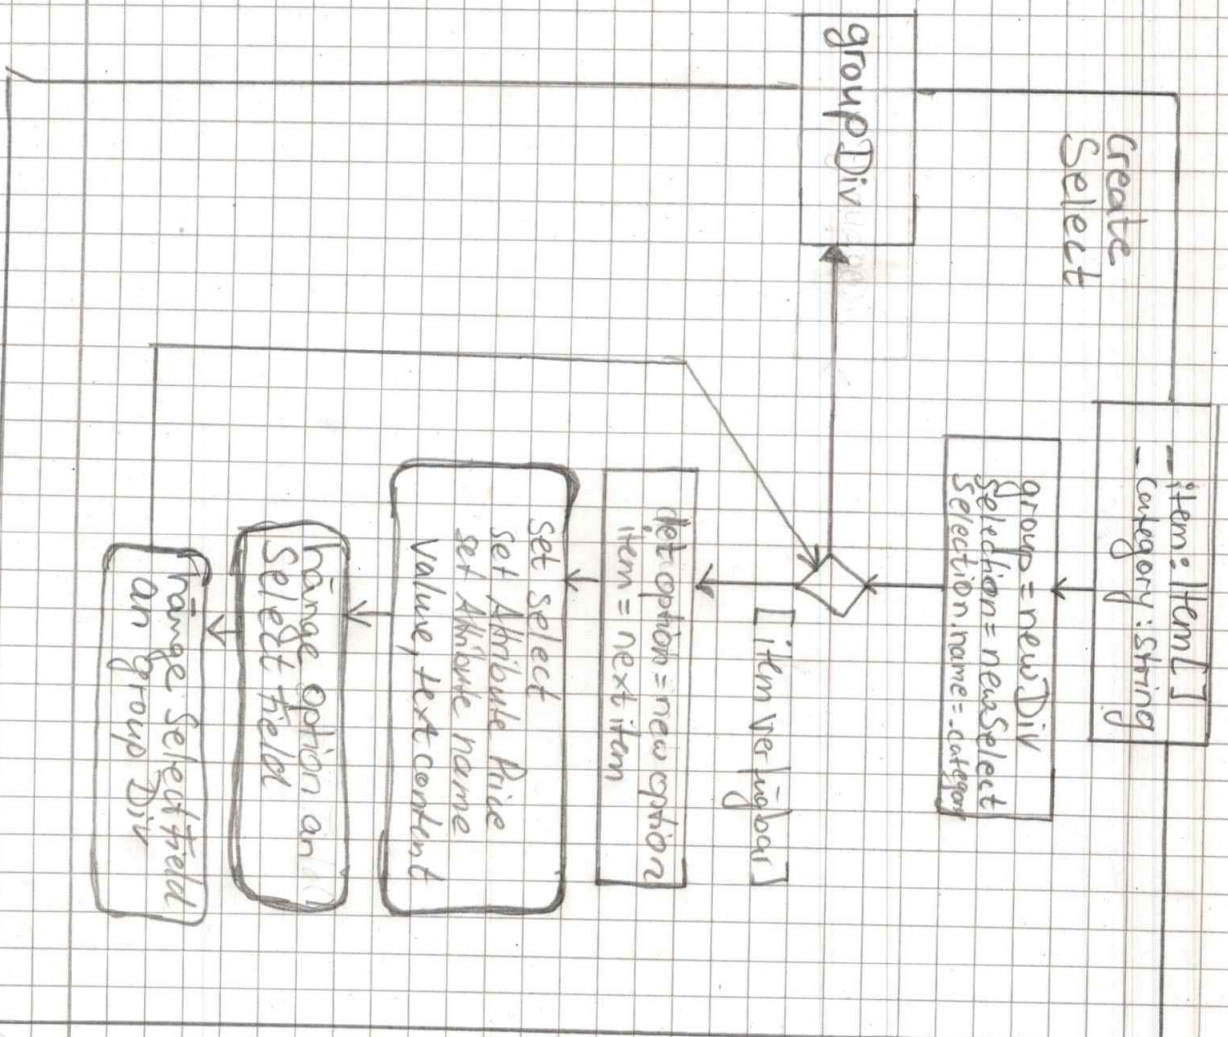 Create
Select
_item: Item[]
_category: String
group = new Div
selection = new Select
Selection.name = _category
[item verfügbar]
groupDiv
let option = new option
item = next item
Set Select
Set Attribute Price
Set Attribute name
value, text content
hänge option an
Select field
hänge Select field
an group Div